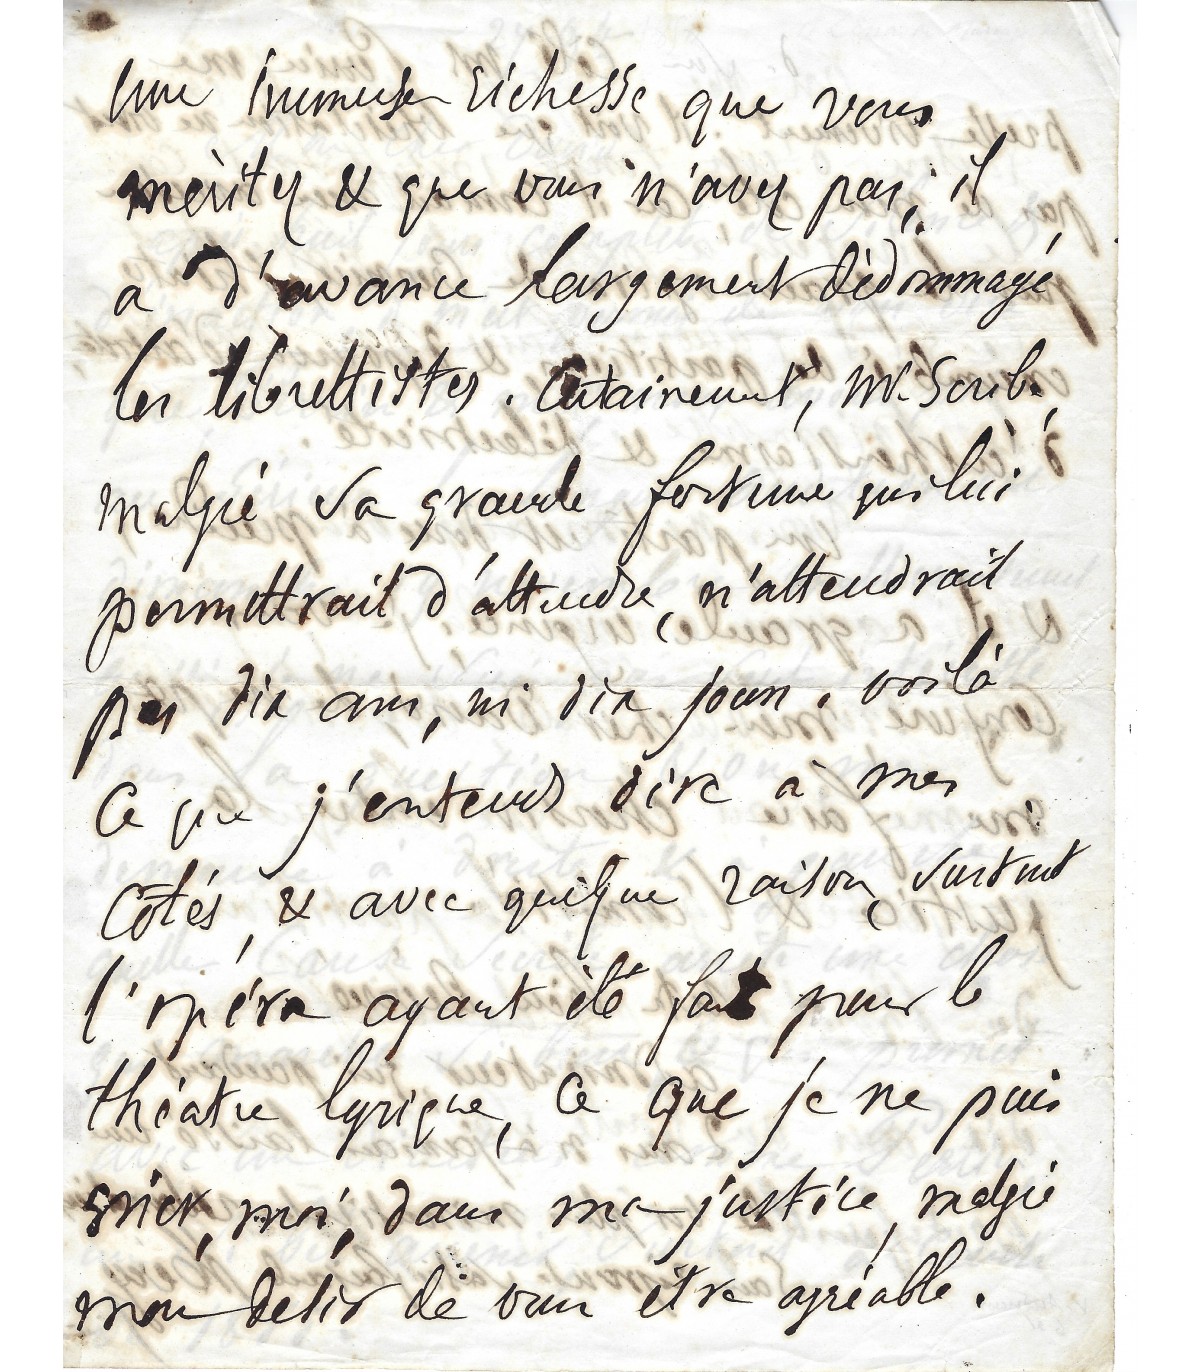 une immense richesse que vous
méritez & que vous n'avez pas, il
a d'avance largement dédommagé
les librettistes. Certainement, Mr. Scribe,
malgré sa grande fortune qui lui
permettrait d'attendre, n'attendrait
pas dix ans, ni dix jours. voilà
ce que j'entends dire à mes
côtés, & avec quelque raison, surtout
l'opéra ayant été fait pour le
théâtre lyrique, ce que je ne puis
nier, moi, dans ma justice, malgré
mon desir de vous être agréable.